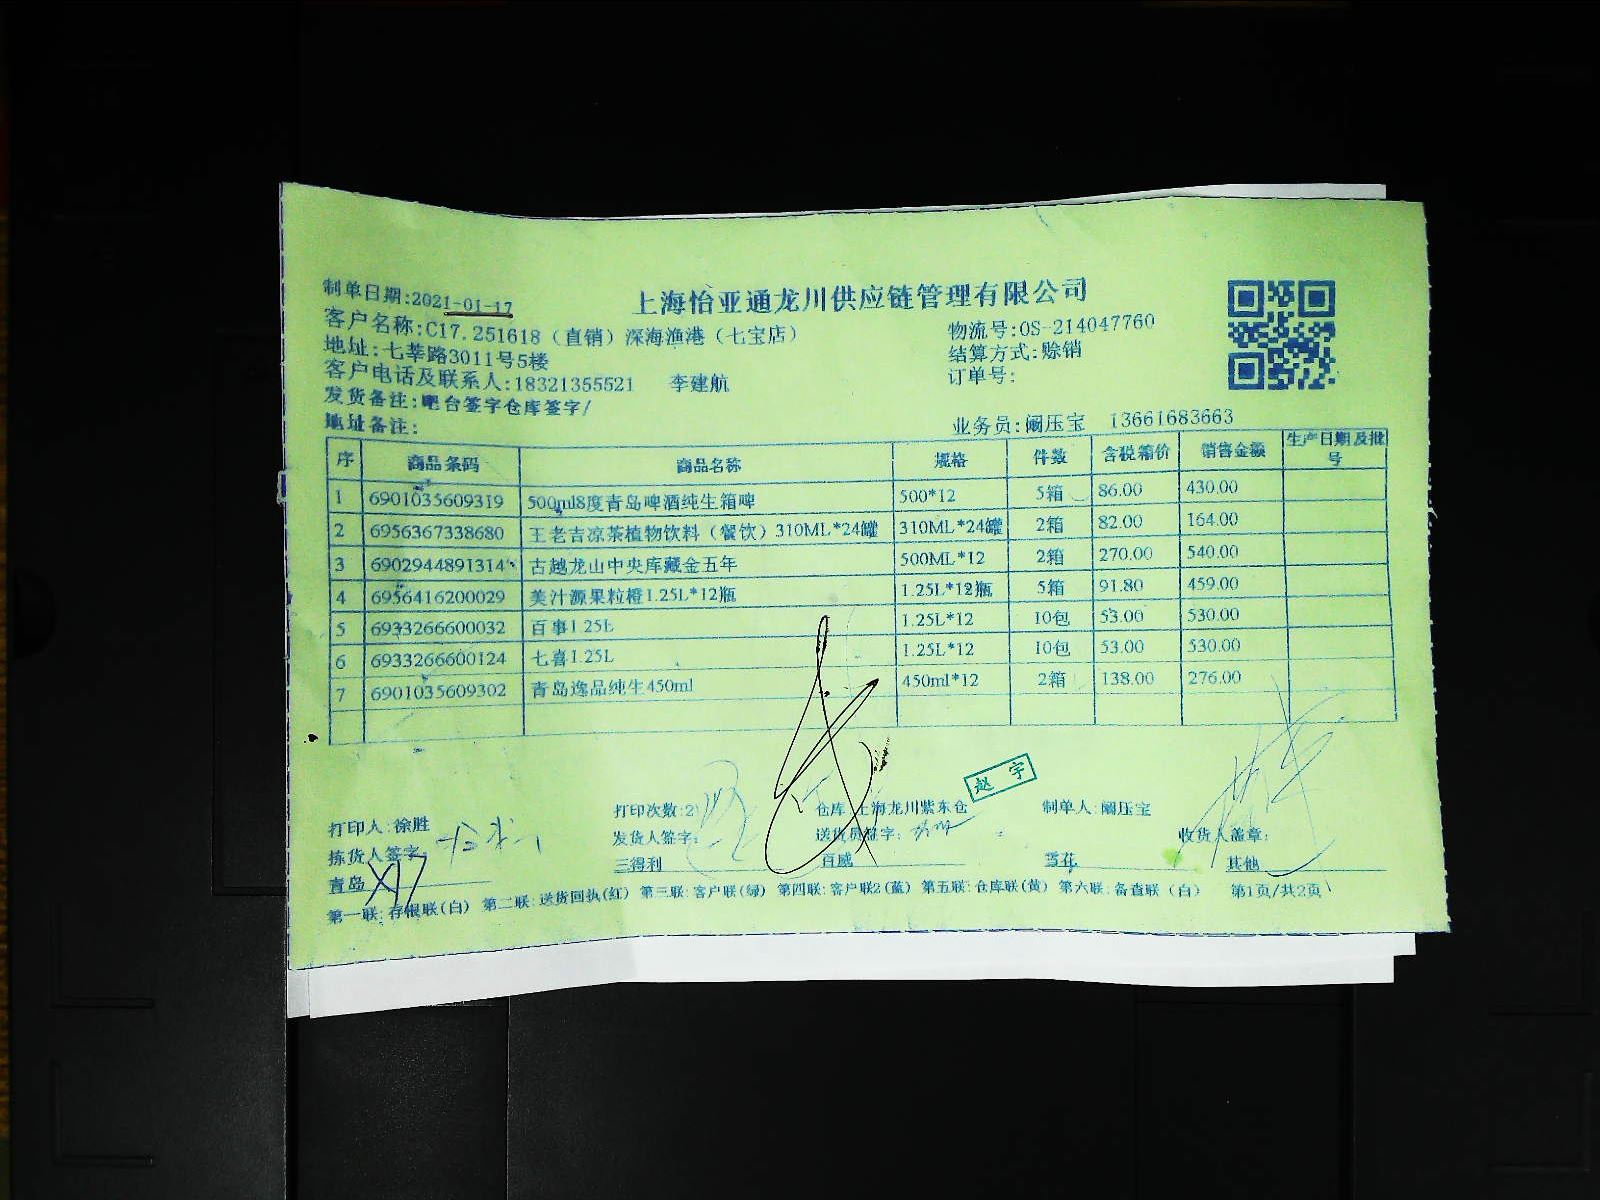 上海怡亚通龙川供应链管理有限公司
制单日期:2021-01-17
客户名称:C17.251618（直销）深海渔港（七宝店） 物流号:OS-214047760
地址:七莘路3011号5楼 结算方式:赊销
客户电话及联系人:18321355521 李建航 订单号:
发货备注:吧台签字仓库签字/
地址备注: 业务员:阚压宝 13661683663
序 商品条码 商品名称 规格 件数 含税箱价 销售金额 生产日期及批号
1 6901035609319 500ml8度青岛啤酒纯生箱啤 500*12 5箱 86.00 430.00
2 6956367338680 王老吉凉茶植物饮料（餐饮）310ML*24罐 310ML*24罐 2箱 82.00 164.00
3 6902944891314 古越龙山中央库藏金五年 500ML*12 2箱 270.00 540.00
4 6956416200029 美汁源果粒橙1.25L*12瓶 1.25L*12瓶 5箱 91.80 459.00
5 6933266600032 百事1.25L 1.25L*12 10包 53.00 530.00
6 6933266600124 七喜1.25L 1.25L*12 10包 53.00 530.00
7 6901035609302 青岛逸品纯生450ml 450ml*12 2箱 138.00 276.00
赵宇
打印人:徐胜 打印次数:2 仓库:上海龙川紫东仓 制单人:阚压宝
拣货人签字: 发货人签字: 送货员签字: 收货人盖章:
青岛 三得利 百威 雪花 其他
第一联:存根联(白) 第二联:送货回执(红) 第三联:客户联(绿) 第四联:客户联2(蓝) 第五联:仓库联(黄) 第六联:备查联(白) 第1页/共2页